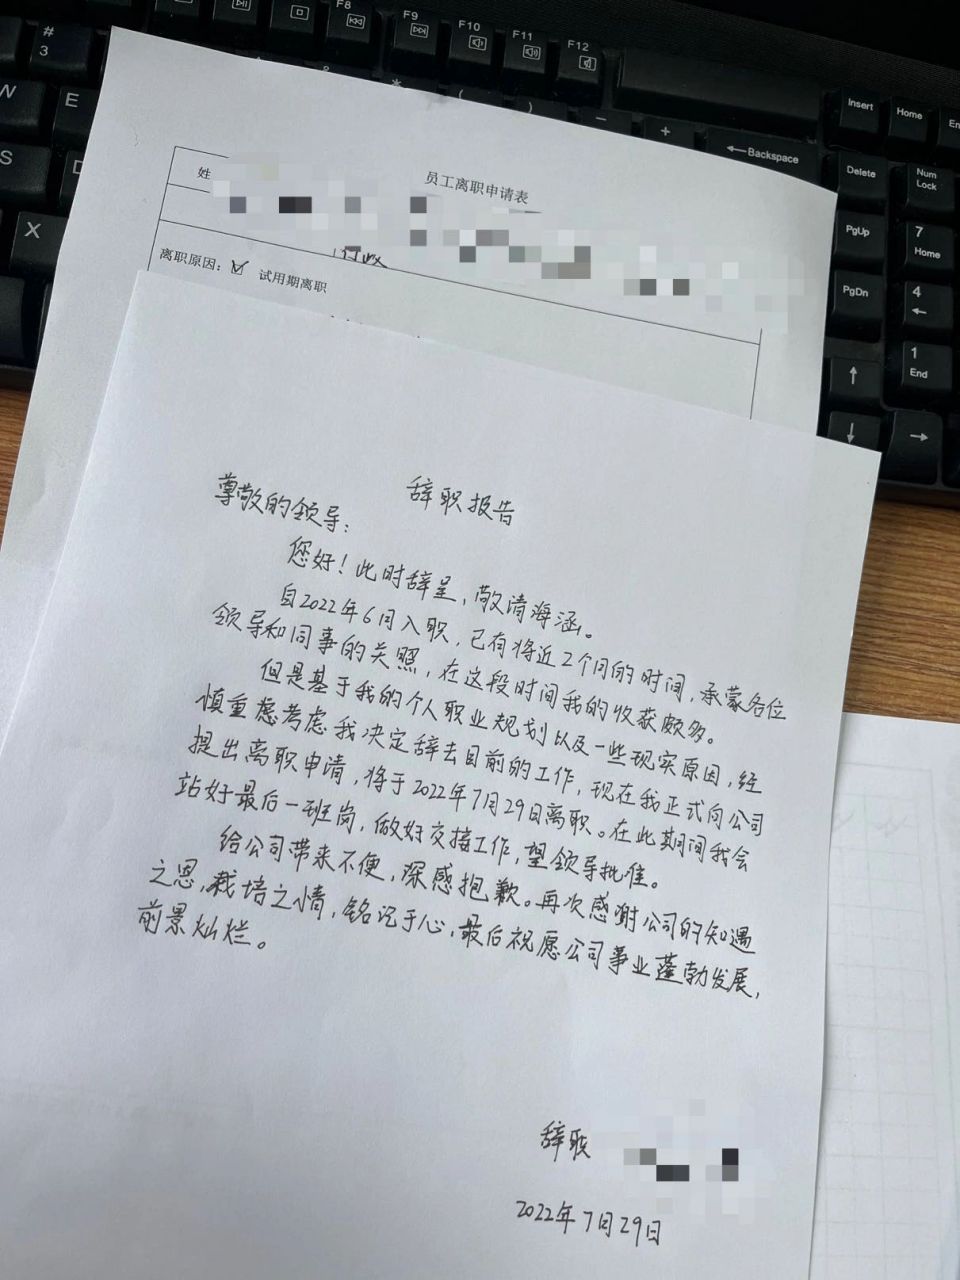 #
3
F8
F9
F10
F11
F12
W
E
S
D
X
Backspace
Insert
Home
Delete
Num
Lock
PgUp
7
Home
PgDn
4
1
End
员工离职申请表
姓
行政
离职原因：☑ 试用期离职
辞职报告
尊敬的领导：
您好！此时辞呈，敬请海涵。
自2022年6月入职，已有将近2个月的时间，承蒙各位
领导和同事的关照，在这段时间我的收获颇多。
但是基于我的个人职业规划以及一些现实原因，经
慎重考虑我决定辞去目前的工作，现在我正式向公司
提出离职申请，将于2022年7月29日离职。在此期间我会
站好最后一班岗，做好交接工作，望领导批准。
给公司带来不便，深感抱歉。再次感谢公司的知遇
之恩，栽培之情，铭记于心，最后祝愿公司事业蓬勃发展，
前景灿烂。
辞职
2022年7月29日